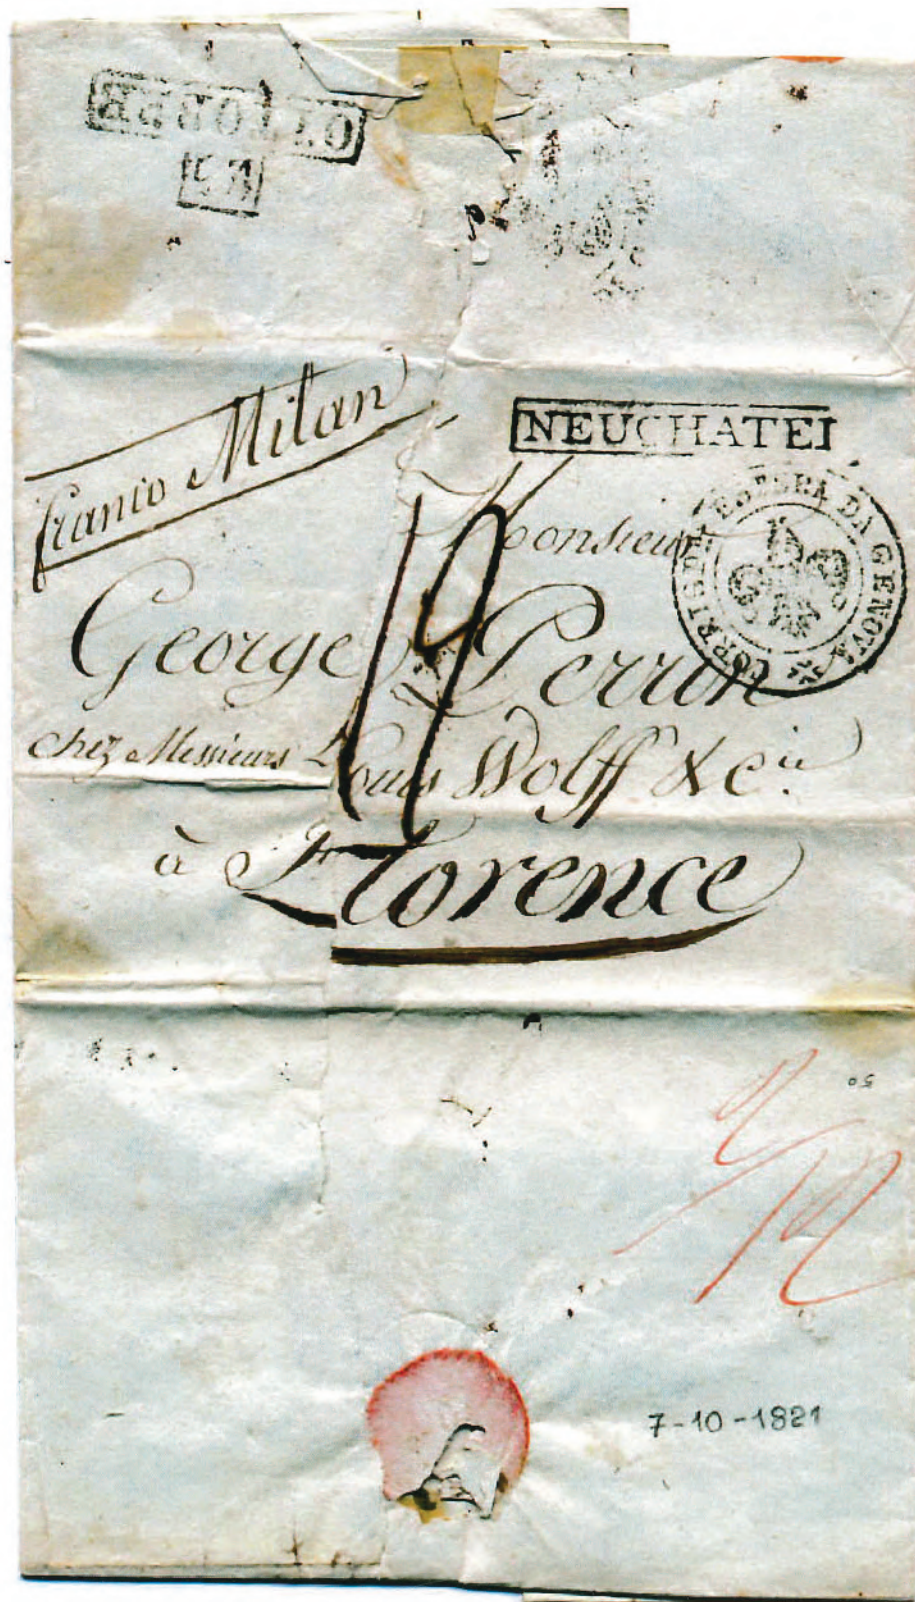 OTTOBRE
franco Milan
NEUCHATEL
CORRISP. ESTERA DA GENOVA
Monsieur
George Perrin
19
chez Messieurs Louis Wolff & Cie.
à Florence
50
7-10-1821